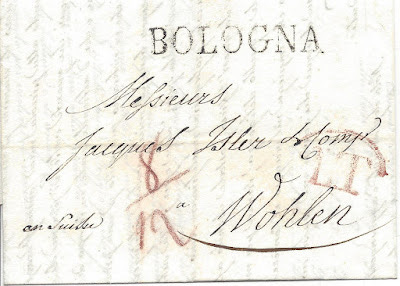 BOLOGNA
Messieurs
Jacques Isler & Comp.
L.T.
8
12
à
Wohlen
en Suisse